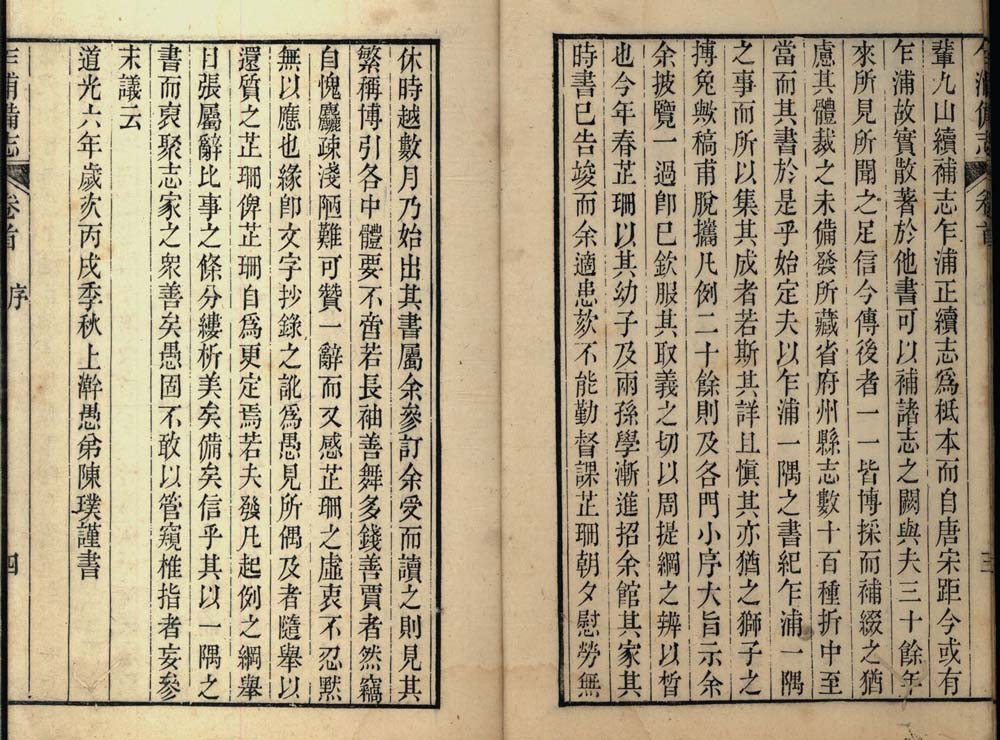 輩九山續補志乍浦正續志爲柢本而自唐宋距今或有
乍浦故實散著於他書可以補諸志之闕與夫三十餘年
來所見所聞之足信今傳後者一一皆博採而補綴之猶
慮其體裁之未備發所藏省府州縣志數十百種折中至
當而其書於是乎始定夫以乍浦一隅之書紀乍浦一隅
之事而所以集其成者若斯其詳且愼其亦猶之獅子之
搏兔歟稿甫脫攜凡例二十餘則及各門小序大旨示余
余披覽一過卽已欽服其取義之切以周提綱之辨以晳
也今年春芷珊以其幼子及兩孫學漸進招余館其家其
時書已告竣而余適患欬不能勤督課芷珊朝夕慰勞無
三
休時越數月乃始出其書屬余參訂余受而讀之則見其
繁稱博引各中體要不啻若長袖善舞多錢善賈者然竊
自愧麤疎淺陋難可贊一辭而又感芷珊之虛衷不忍默
無以應也緣卽文字抄錄之訛爲愚見所偶及者隨舉以
還質之芷珊俾芷珊自爲更定焉若夫發凡起例之綱舉
目張屬辭比事之條分縷析美矣備矣信乎其以一隅之
書而裒聚志家之衆善矣愚固不敢以管窺椎指者妄參
末議云
道光六年歲次丙戌季秋上澣愚弟陳璞謹書
乍浦備志
卷首
序
四